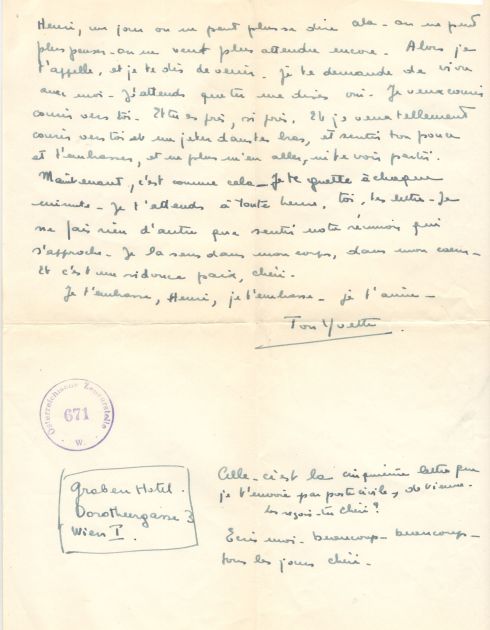 Henri, un jour on ne peut plus se dire cela - on ne peut
plus penser - on ne veut plus attendre encore. Alors je
t'appelle, et je te dis de venir. Je te demande de vivre
avec moi - J'attends que tu me dises oui. Je veux courir
courir vers toi. Et tu es près, si près. Et je veux tellement
courir vers toi et me jeter dans tes bras, et sentir ton
et t'embrasser, et ne plus m'en aller, ni te voir partir.
Maintenant, c'est comme cela - Je te guette à chaque
minute - Je t'attends à toute heure, toi, tes lettres - Je
ne fais rien d'autre que sentir notre réunion qui
s'approche - Je la sens dans mon corps, dans mon coeur -
Et c'est une si douce paix, chéri -
Je t'embrasse, Henri, je t'embrasse - je t'aime -
Ton Yvette.
Österreichische Zensurstelle
671
- W. -
Celle-ci est la cinquième lettre que
je t'envoie par poste civile, de Vienne -
les reçois-tu chéri?
Ecris moi - beaucoup - beaucoup -
tous les jours chéri -
Graben Hotel.
Dorotheergasse 3
Wien I.